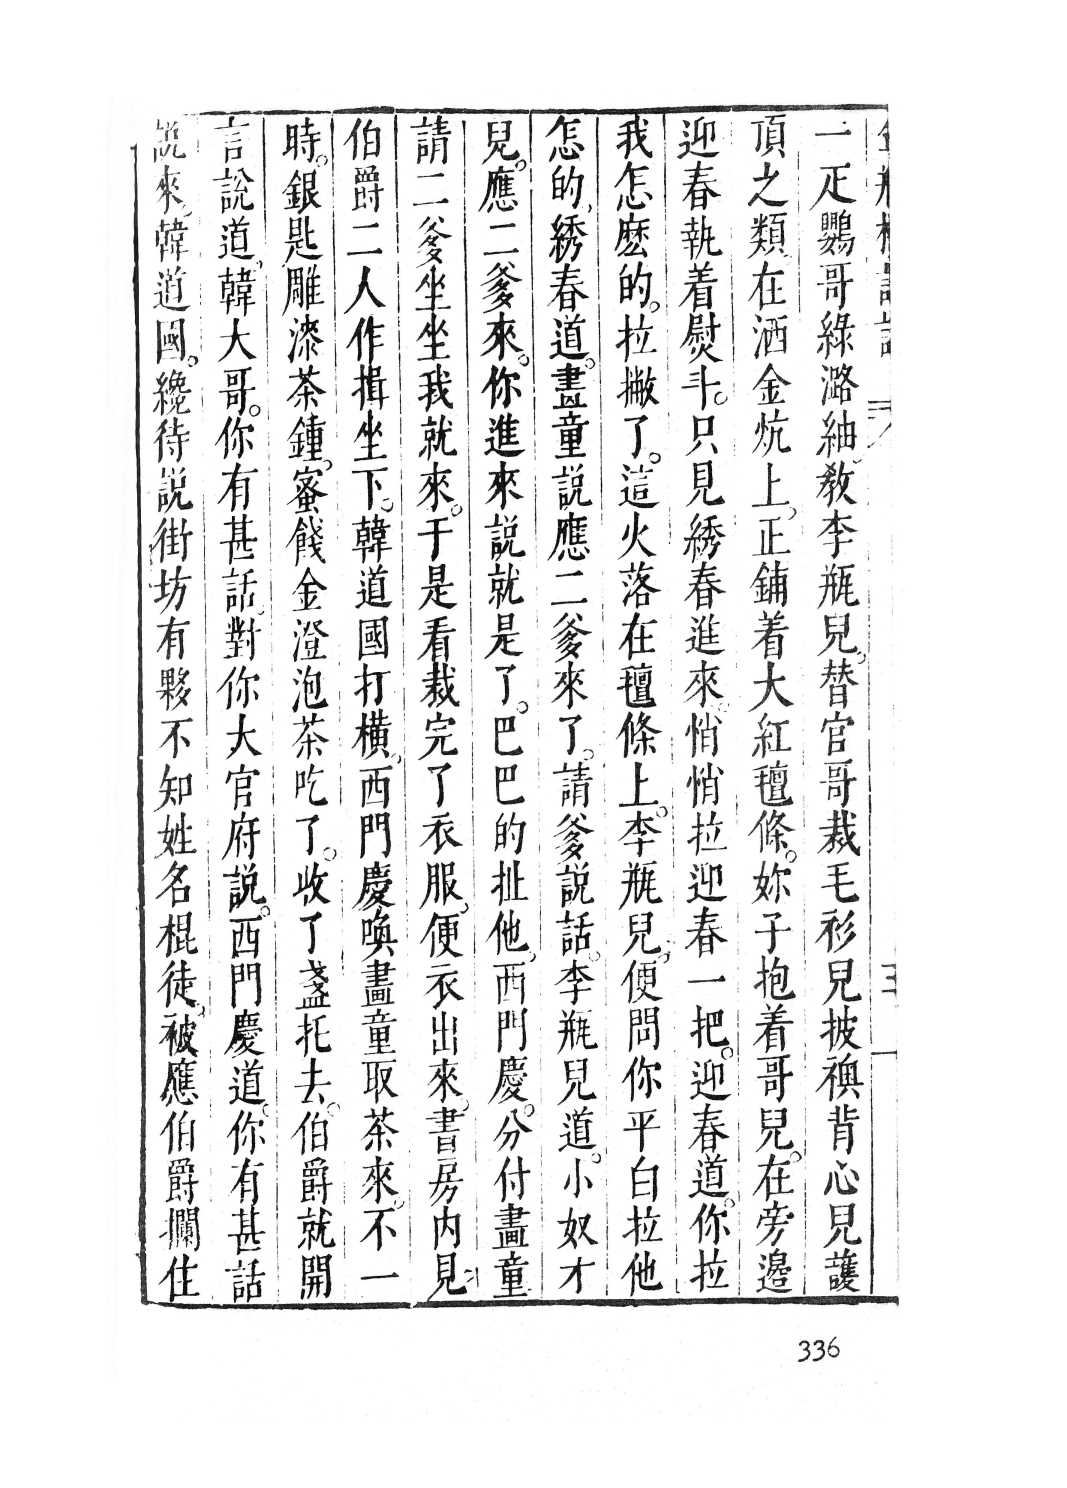 一疋鸚哥綠潞紬教李瓶兒。替官哥裁毛衫兒披襖背心兒護
頂之類在洒金炕上。正鋪着大紅氊條。妳子抱着哥兒。在旁邊
迎春執着熨斗。只見綉春進來。悄悄拉迎春一把。迎春道。你拉
我怎麼的。拉撇了。這火落在氊條上。李瓶兒便問你平白拉他
怎的。綉春道。畫童説應二爹來了。請爹説話。李瓶兒道。小奴才
兒。應二爹來。你進來説就是了。巴巴的扯他。西門慶。分付畫童
請二爹坐坐我就來。于是看裁完了衣服。便衣出來。書房内見
伯爵二人作揖坐下。韓道國打橫。西門慶喚畫童取茶來。不一
時。銀匙雕漆茶鍾。蜜餞金澄泡茶吃了。收了盞托去。伯爵就開
言説道。韓大哥。你有甚話。對你大官府説。西門慶道。你有甚話
説來。韓道國。纔待説街坊有夥不知姓名棍徒。被應伯爵攔住
336